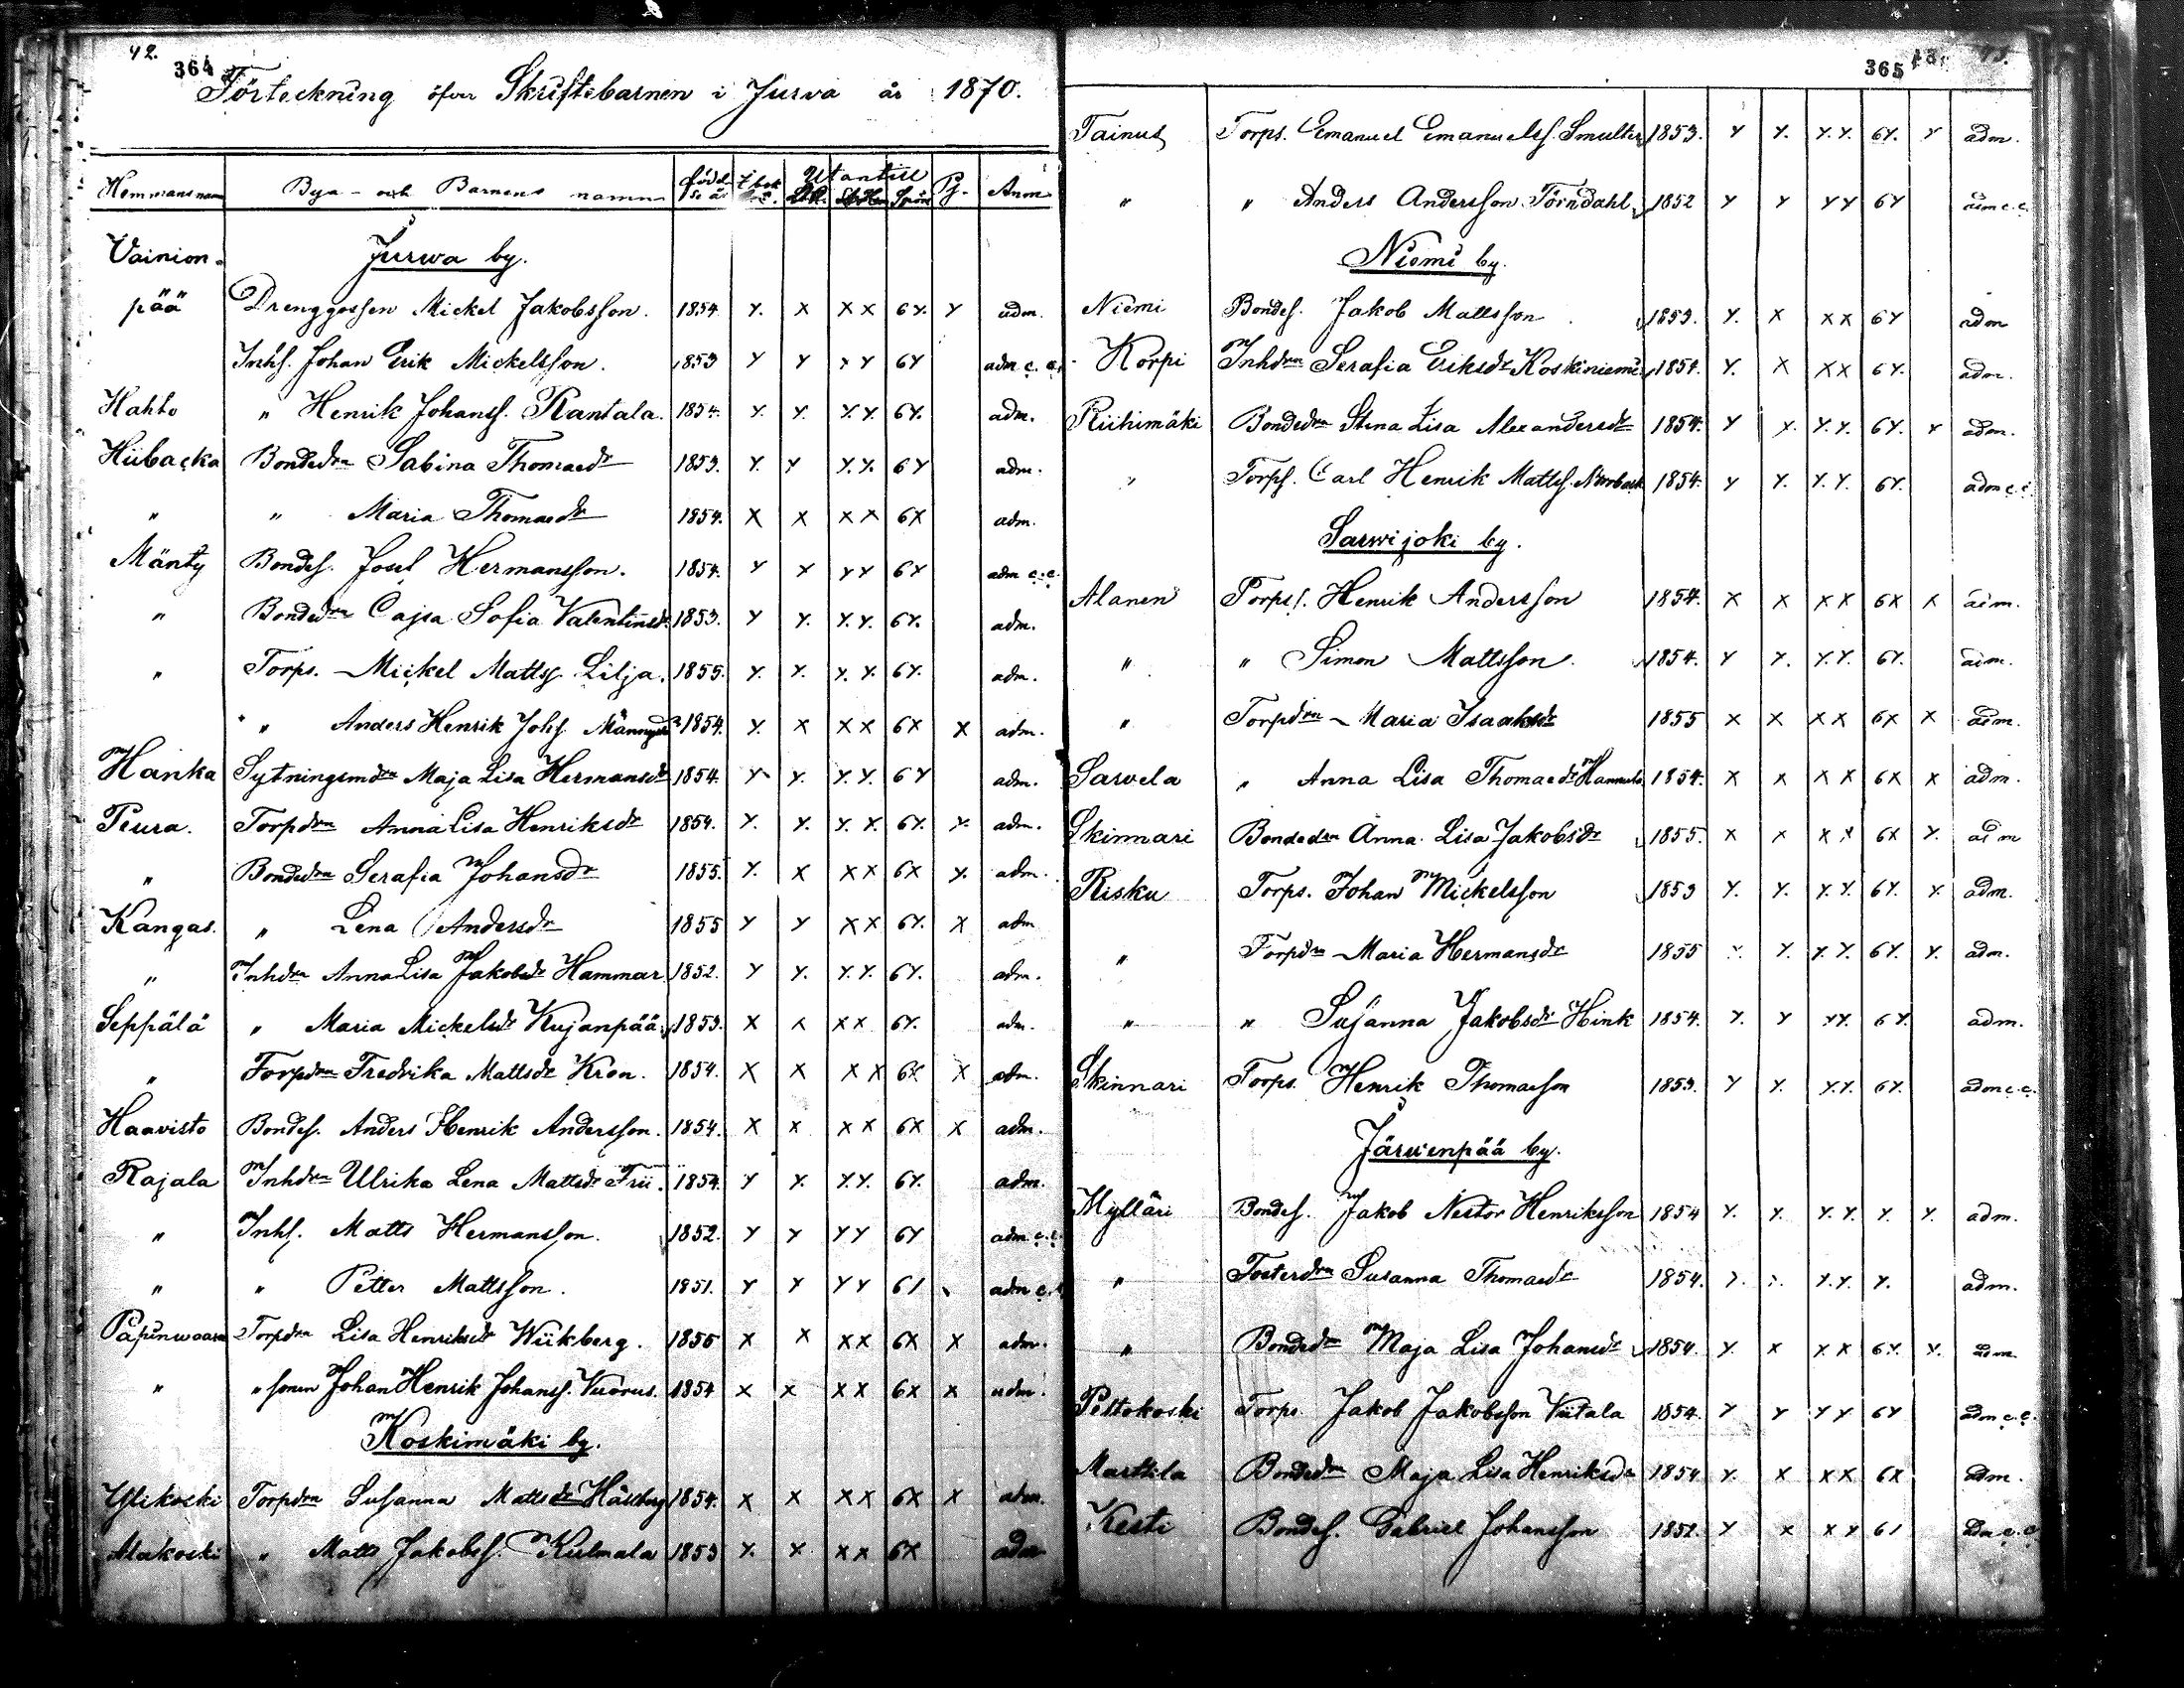 42.
364
Förteckning öfver Skriftebarnen i Jurva år 1870.
Hemmansnamn Bya- och Barnens namn född. år i bok Utantill Pj. Anm
Vainion- Jurwa by.
pää Drenggossen Mickel Jakobsson. 1854. x. x x x 6x. x adm.
Inhs. Johan Erik Mickelsson. 1853 x x x x 6x adm c. c.
Hahto " Henrik Johanss. Rantala. 1854. x. x. x. x. 6x. adm.
Hiibacka Bondedrn Sabina Thomasdr 1853. x. x x. x. 6x adm.
" " Maria Thomasdr 1854. x x x x 6x adm.
Mänty Bondes. Josef Hermansson. 1854. x x x x 6x adm c. c.
" Bondedrn Cajsa Sofia Valentinsdr 1853. x x. x. x. 6x. adm.
" Torps. Mickel Mattss. Lilja. 1855. x. x. x. x. 6x. adm.
" Anders Henrik Johs. 1854. x. x x x 6x x adm.
Hanka Sytningsmdrn Maja Lisa Hermansdr 1854. x x. x. x. 6x adm.
Peura. Torpdrn Anna Lisa Henriksdr 1854. x. x. x. x. 6x. x. adm.
" Bondedrn Serafia Johansdr 1855. x. x x x 6x x. adm.
Kangas. " Lena Andersdr 1855 x x x x 6x. x adm
" Inhdrn Anna Lisa Jakobsdr Hammar. 1852. x x. x. x. 6x. adm.
Seppälä " Maria Mickelsdr Kujanpää. 1853. x x x x 6x. adm.
" Torpdrn Fredrika Mattsdr Kron. 1854. x x x x 6x x adm.
Haavisto Bondes. Anders Henrik Andersson. 1854. x x x x 6x x adm.
Rajala Inhdrn Ulrika Lena Mattsdr Frii. 1854. x x. x. x. 6x. adm.
" Inhs. Matts Hermansson. 1852. x x x x 6x adm c. c.
" " Petter Mattsson. 1851. x x x x 61 adm c.
Papinwaara Torpdrn Lisa Henriksdr Wiikberg. 1855 x x x x 6x x adm.
" " sonen Johan Henrik Johanss. Vuorus. 1854 x x x x 6x x adm.
Koskimäki by.
Ylikoski Torpdrn Susanna Mattsdr 1854. x x x x 6x x adm.
Alakoski " Matts Jakobss. Kulmala 1853 x. x x x 6x adm
365 43.
Tainus Torps. Emanuel Emanuelss. Smulter 1853. x x. x. x. 6x. x adm.
" " Anders Andersson Törndahl 1852 x x x x 6x adm c. c.
Niemi by.
Niemi Bondes. Jakob Mattsson 1853. x. x x x 6x adm
Korpi Inhdrn Serafia Eriksdr Koskiniemi 1854. x. x x x 6x. adm.
Riihimäki Bondedrn Stina Lisa Alexandersdr 1854. x x. x. x. 6x. x adm.
" Torps. Carl Henrik Mattss. 1854. x x. x. x. 6x. adm c. c.
Sarwijoki by.
Alanen Torps. Henrik Andersson 1854. x x x x 6x x adm.
" " Simon Mattsson. 1854. x x. x. x. 6x. adm.
" Torpdrn Maria Isaaksdr 1855 x x x x 6x x adm.
Sarvela " Anna Lisa Thomasdr Hannula 1854. x x x x 6x x adm.
Skinnari Bondedrn Anna Lisa Jakobsdr 1855. x x x x 6x x. adm
Risku Torps. Johan Mickelsson 1853 x. x. x. x. 6x. x adm.
" Torpdrn Maria Hermansdr 1855 x. x. x. x. 6x. x. adm.
" " Susanna Jakobsdr Hink 1854. x. x x x. 6x. adm.
Skinnari Torps. Henrik Thomasson 1853. x x. x. x. 6x. adm c. c.
Järwenpää by.
Mylläri Bondes. Jakob Nestor Henriksson 1854 x. x. x. x. x. x. adm.
" Fosterdrn Susanna Thomasdr 1854. x. x. x. x. x. adm.
" Bondedr Maja Lisa Johansdr 1854. x. x x. x 6x. x. adm.
Peltokoski Torps. Jakob Jakobsson Viitala 1854. x x x x 6x adm c. c.
Marttila Bondedrn Maja Lisa Henriksdr 1854 x. x x x 6x adm.
Kesti Bondes. Gabriel Johansson 1852. x x x x 61 adm c. c.